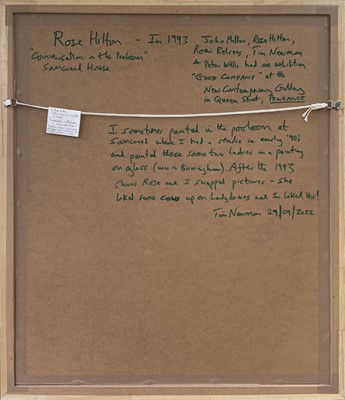 Rose Hilton - In 1993 John Miller, Rose Hilton,
"Conversation in the Poolroom" Rosie Belvers, Tim Newman
Sancreed House & Peter Wills had an exhibition
"GOOD COMPANY" at the
New Contemporary Gallery
in Queen Street, PENZANCE
I sometimes painted in the poolroom at
Sancreed when I had a studio in early '90s
and painted these same two ladies in a painting
on glass (now in Birmingham). After the 1993
show Rose and I swapped pictures - she
liked some cows up on Ladydowns and I liked this!
Tim Newman 29/09/2022